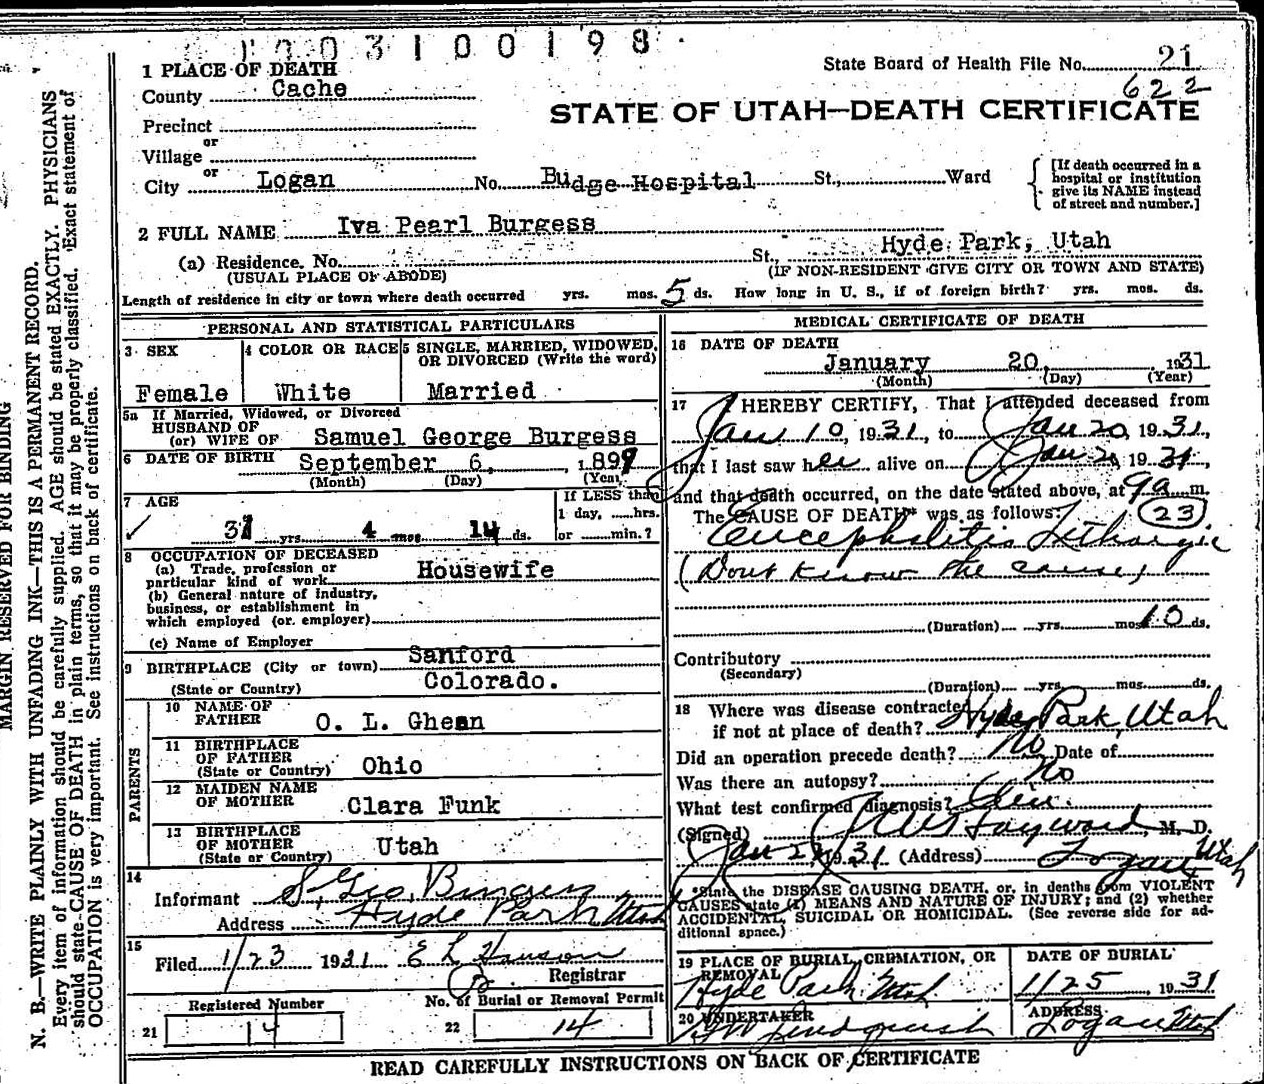 1003100198
State Board of Health File No. 21
622
STATE OF UTAH—DEATH CERTIFICATE
1 PLACE OF DEATH
County Cache
Precinct
or
Village
or
City Logan No. Budge Hospital St., Ward
[If death occurred in a
hospital or institution
give its NAME instead
of street and number.]
2 FULL NAME Iva Pearl Burgess
(a) Residence, No. St., Hyde Park, Utah
(USUAL PLACE OF ABODE) (IF NON-RESIDENT GIVE CITY OR TOWN AND STATE)
Length of residence in city or town where death occurred yrs. mos. 5 ds. How long in U. S., if of foreign birth? yrs. mos. ds.
PERSONAL AND STATISTICAL PARTICULARS
3 SEX
Female
4 COLOR OR RACE
White
5 SINGLE, MARRIED, WIDOWED,
OR DIVORCED (Write the word)
Married
5a If Married, Widowed, or Divorced
HUSBAND OF
(or) WIFE OF Samuel George Burgess
6 DATE OF BIRTH September 6, 1899
(Month) (Day) (Year)
7 AGE
31 yrs 4 mos 14 ds.
If LESS than
1 day, ......hrs.
or ......min.?
8 OCCUPATION OF DECEASED
(a) Trade, profession or
particular kind of work Housewife
(b) General nature of industry,
business, or establishment in
which employed (or employer)
(c) Name of Employer
9 BIRTHPLACE (City or town) Sanford
(State or Country) Colorado.
PARENTS
10 NAME OF
FATHER O. L. Ghean
11 BIRTHPLACE
OF FATHER
(State or Country) Ohio
12 MAIDEN NAME
OF MOTHER Clara Funk
13 BIRTHPLACE
OF MOTHER
(State or Country) Utah
14
Informant S. Geo. Burgess
Address Hyde Park Utah
15
Filed 1/23 1931 E L Hanson
Registrar
Registered Number
21 14
No. of Burial or Removal Permit
22 14
MEDICAL CERTIFICATE OF DEATH
16 DATE OF DEATH
January 20, 1931
(Month) (Day) (Year)
17 I HEREBY CERTIFY, That I attended deceased from
Jan 10, 1931, to Jan 20, 1931,
that I last saw her alive on Jan 20 1931,
and that death occurred, on the date stated above, at 9a m.
The CAUSE OF DEATH* was as follows: 23
Encephalitis Lethargic
(Dont know the cause)
(Duration) yrs. mos. 10 ds.
Contributory
(Secondary)
(Duration) yrs. mos. ds.
18 Where was disease contracted
if not at place of death? Hyde Park, Utah
Did an operation precede death? No Date of
Was there an autopsy? No
What test confirmed diagnosis? Clin.
(Signed) Hayward, M. D.
Jan 21 1931 (Address) Logan Utah
*State the DISEASE CAUSING DEATH, or, in deaths from VIOLENT
CAUSES state (1) MEANS AND NATURE OF INJURY; and (2) whether
ACCIDENTAL, SUICIDAL OR HOMICIDAL. (See reverse side for ad-
ditional space.)
19 PLACE OF BURIAL, CREMATION, OR
REMOVAL
Hyde Park Utah
DATE OF BURIAL
1/25, 1931
20 UNDERTAKER
Lindquist
ADDRESS
Logan Utah
READ CAREFULLY INSTRUCTIONS ON BACK OF CERTIFICATE
MARGIN RESERVED FOR BINDING
N. B.—WRITE PLAINLY WITH UNFADING INK—THIS IS A PERMANENT RECORD.
Every item of information should be carefully supplied. AGE should be stated EXACTLY. PHYSICIANS
should state CAUSE OF DEATH in plain terms, so that it may be properly classified. Exact statement of
OCCUPATION is very important. See instructions on back of certificate.